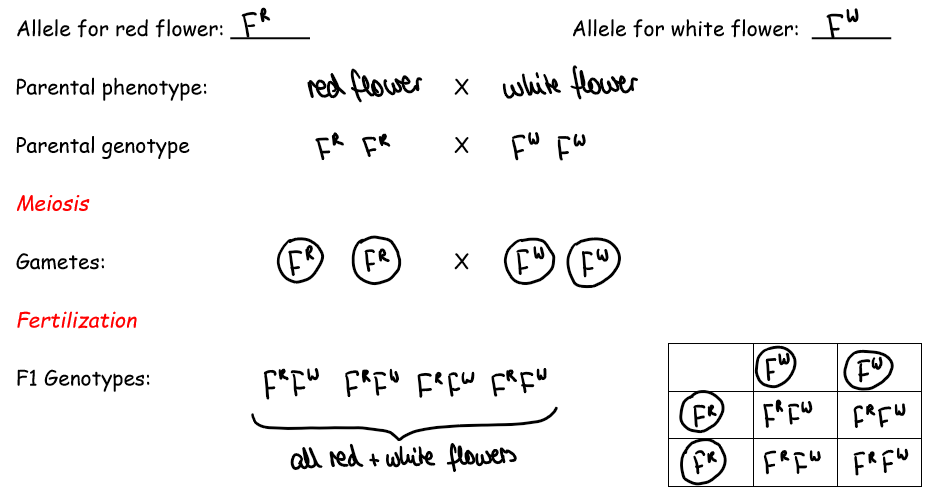 Allele for red flower: Fᴿ Allele for white flower: Fᵂ
Parental phenotype: red flower X white flower
Parental genotype Fᴿ Fᴿ X Fᵂ Fᵂ
Meiosis
Gametes: Fᴿ Fᴿ X Fᵂ Fᵂ
Fertilization
F1 Genotypes: FᴿFᵂ FᴿFᵂ FᴿFᵂ FᴿFᵂ
all red + white flowers
Fᵂ Fᵂ
Fᴿ FᴿFᵂ FᴿFᵂ
Fᴿ FᴿFᵂ FᴿFᵂ